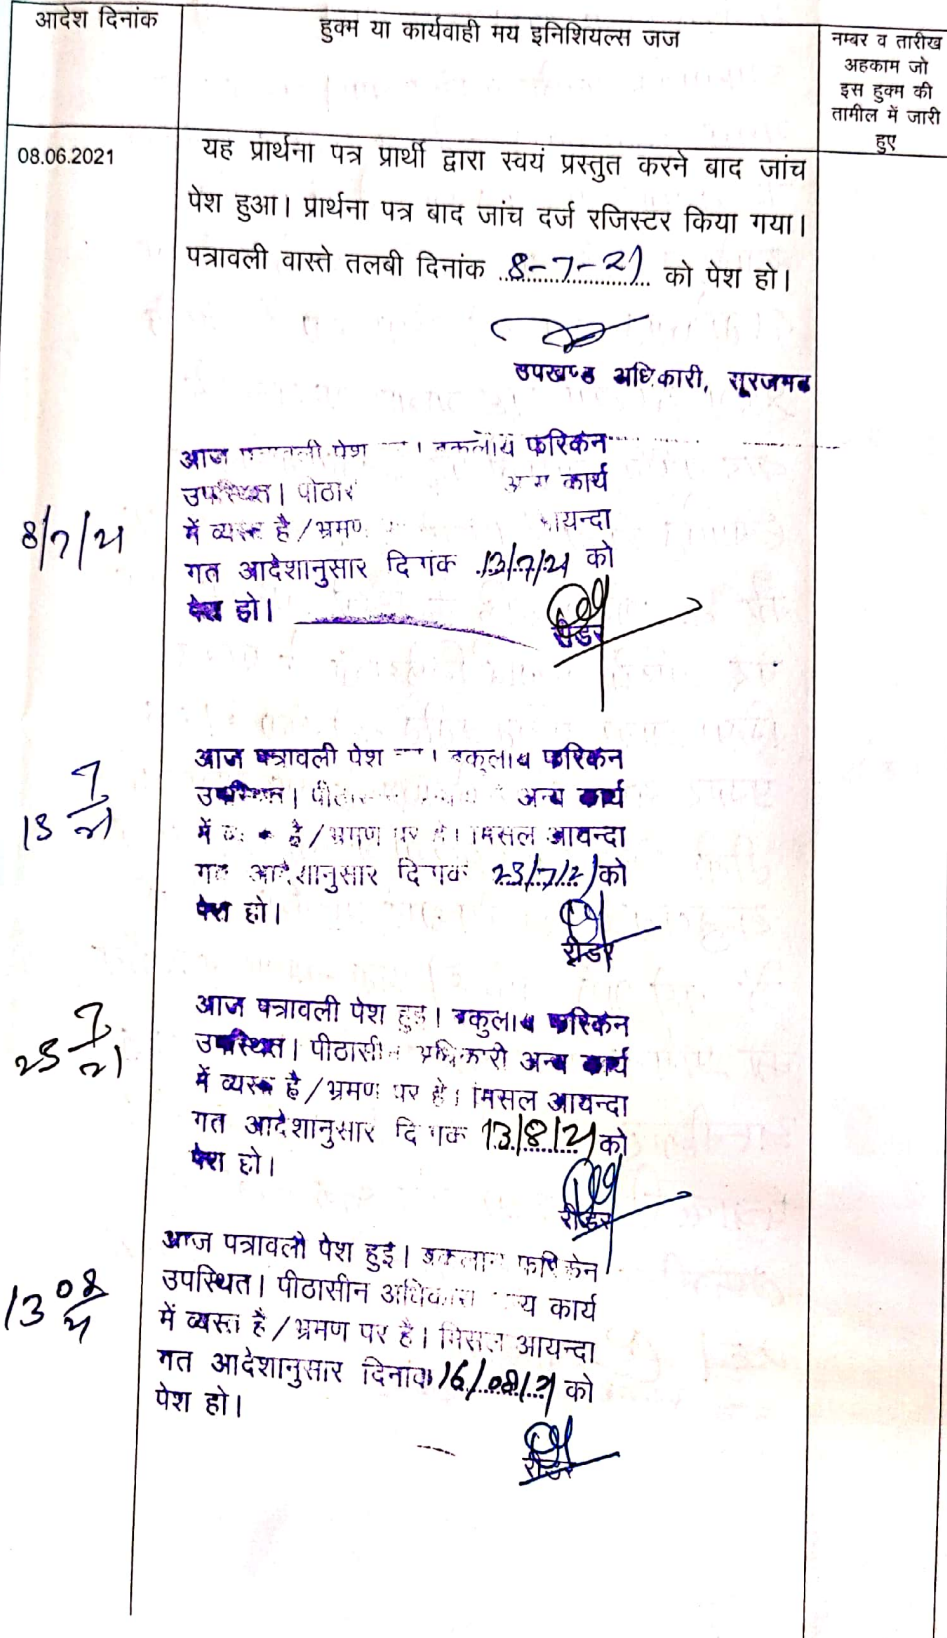 आदेश दिनांक
हुक्म या कार्यवाही मय इनिशियल्स जज
नम्बर व तारीख
अहकाम जो
इस हुक्म की
तामील में जारी
हुए
08.06.2021
यह प्रार्थना पत्र प्रार्थी द्वारा स्वयं प्रस्तुत करने बाद जांच
पेश हुआ। प्रार्थना पत्र बाद जांच दर्ज रजिस्टर किया गया।
पत्रावली वास्ते तलबी दिनांक 8-7-21 को पेश हो।
उपखण्ड अधिकारी, सूरजगढ
8/7/21
आज पत्रावली पेश फरिकेन
उपस्थित। कार्य
में व्यस्त है/भ्रमण आयन्दा
गत आदेशानुसार दिनांक 13/7/21 को
पेश हो।
रीडर
13 7/21
आज पत्रावली पेश वकुलाय फरिकेन
उपस्थित। अन्य कार्य
में है/भ्रमण पर है। मिसल आयन्दा
गत आदेशानुसार दिनांक 23/7/21 को
पेश हो।
रीडर
23 7/21
आज पत्रावली पेश हुई। वकुलाय फरिकेन
उपस्थित। पीठासीन अधिकारी अन्य कार्य
में व्यस्त है/भ्रमण पर है। मिसल आयन्दा
गत आदेशानुसार दिनांक 13/8/21 को
पेश हो।
रीडर
13 08/21
आज पत्रावली पेश हुई। वकुलाय फरिकेन
उपस्थित। पीठासीन अधिकारी अन्य कार्य
में व्यस्त है/भ्रमण पर है। मिसल आयन्दा
गत आदेशानुसार दिनांक 16/08/21 को
पेश हो।
रीडर